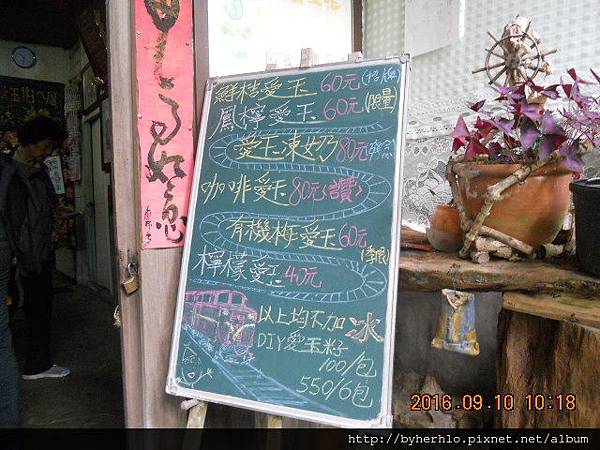 鮮桔愛玉 60元(招牌)
鳳檸愛玉 60元(限量)
愛玉凍奶 80元
咖啡愛玉 80元(讚)
有機梅愛玉 60元(季限)
檸檬愛玉 40元
以上均不加冰
DIY愛玉籽
100/包
550/6包
2016.09.10 10:18
http://byherhlo.pixnet.net/album